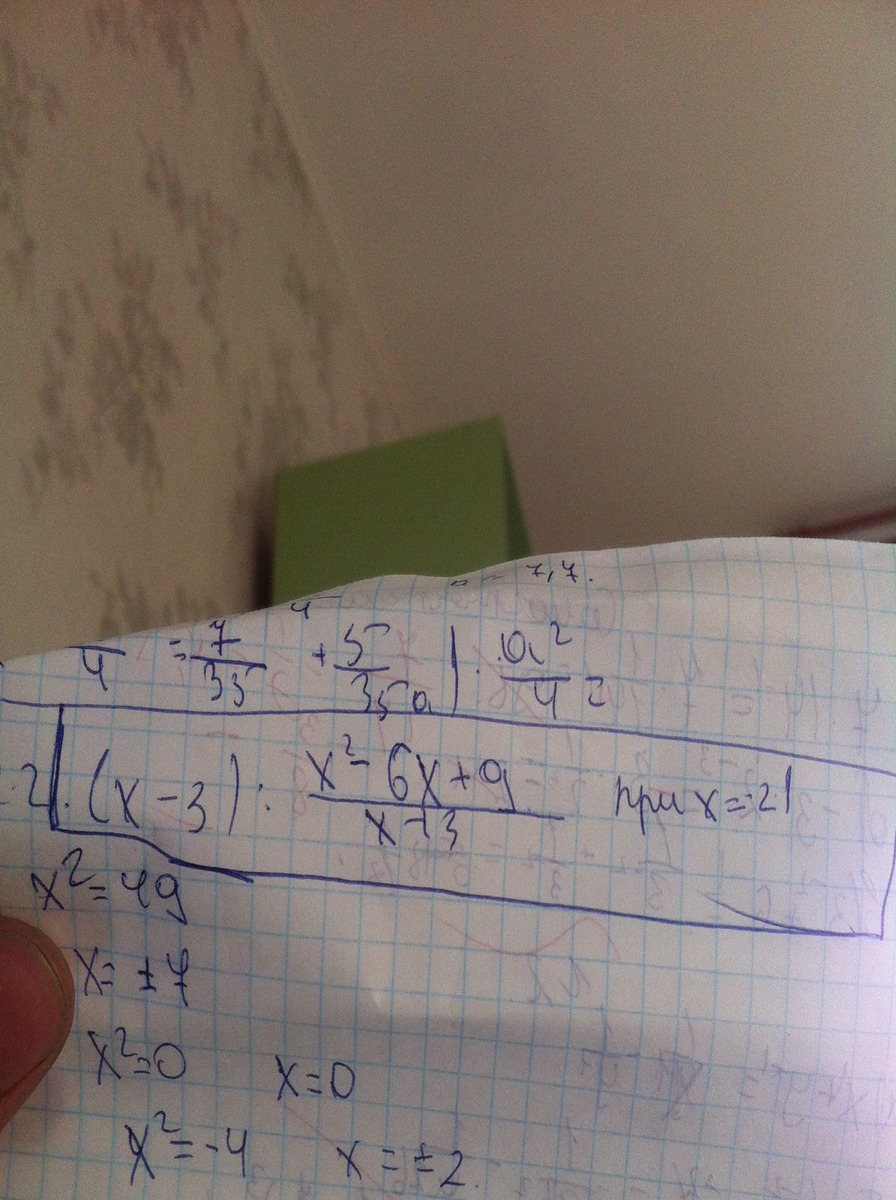 7,7.
4
4 = 7/35 + 5/35a) · a²/4 =
2. (x-3) : (x²-6x+9)/(x+3) при x=-21
x²=49
x=±7
x²=0 x=0
x²=-4 x=±2